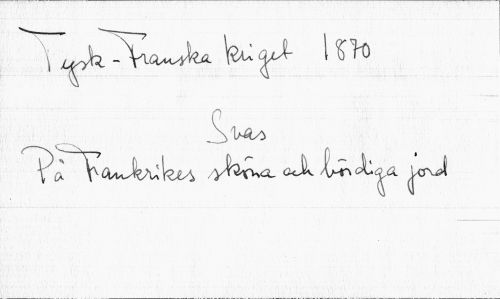 Tysk-Franska kriget 1870
Svas
På Frankrikes sköna och bördiga jord